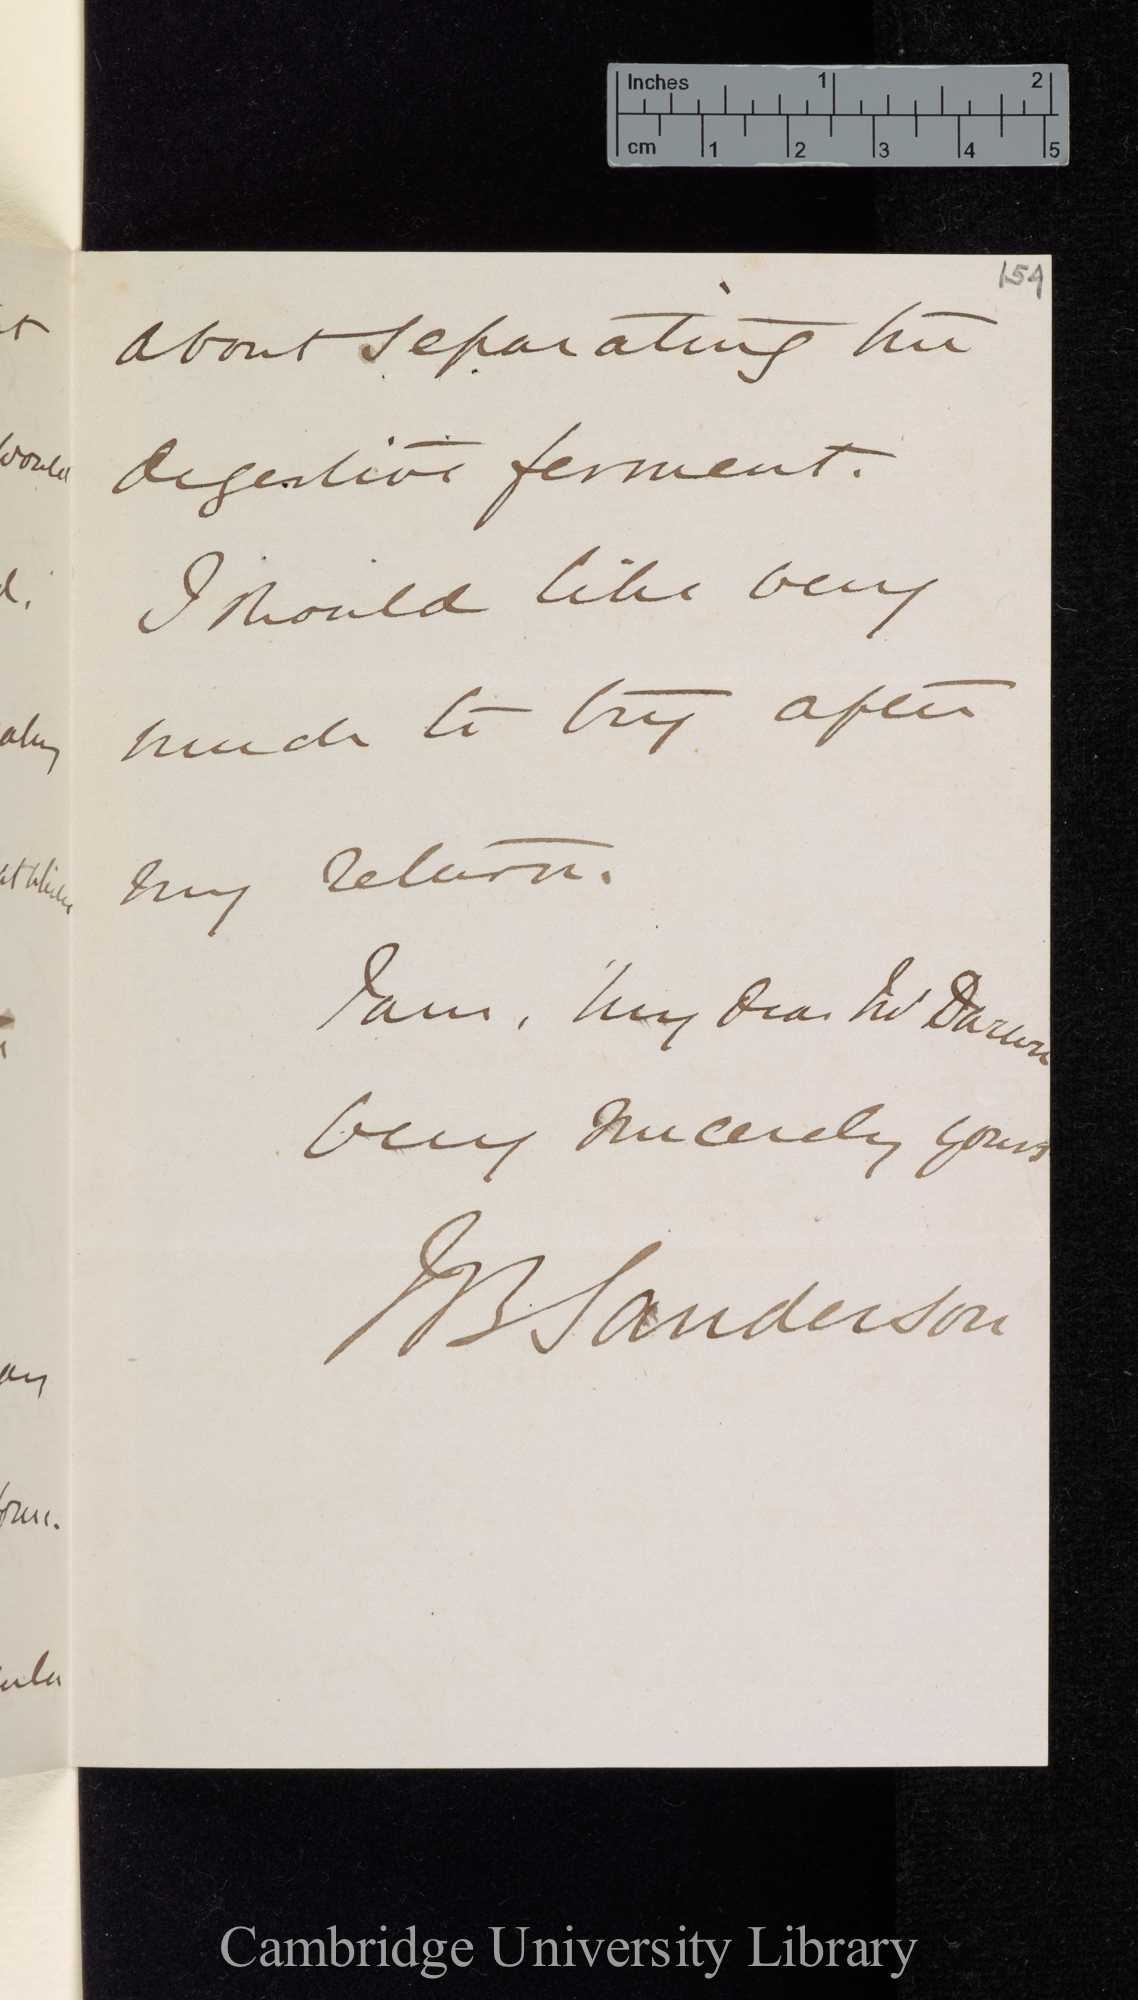 Inches 1 2
cm 1 2 3 4 5
154
about separating the
digestive ferment.
I should like very
much to try after
my return.
I am, my dear Mr Darwin
very sincerely yours
JBSanderson
would
Cambridge University Library